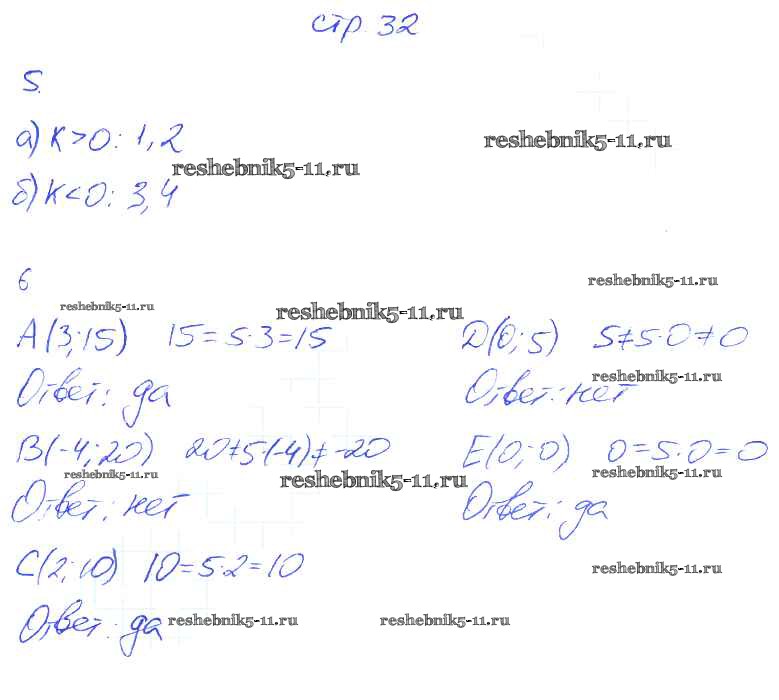 стр. 32
5.
а) K>0: 1,2
reshebnik5-11.ru
reshebnik5-11.ru
б) K<0: 3,4
6
reshebnik5-11.ru
reshebnik5-11.ru
reshebnik5-11.ru
A(3;15) 15=5·3=15
Ответ: да
B(-4;20) 20≠5·(-4)≠-20
reshebnik5-11.ru
reshebnik5-11.ru
Ответ: нет
C(2;10) 10=5·2=10
Ответ: да
reshebnik5-11.ru
reshebnik5-11.ru
D(0;5) 5≠5·0≠0
reshebnik5-11.ru
Ответ: нет
E(0;0) 0=5·0=0
reshebnik5-11.ru
Ответ: да
reshebnik5-11.ru